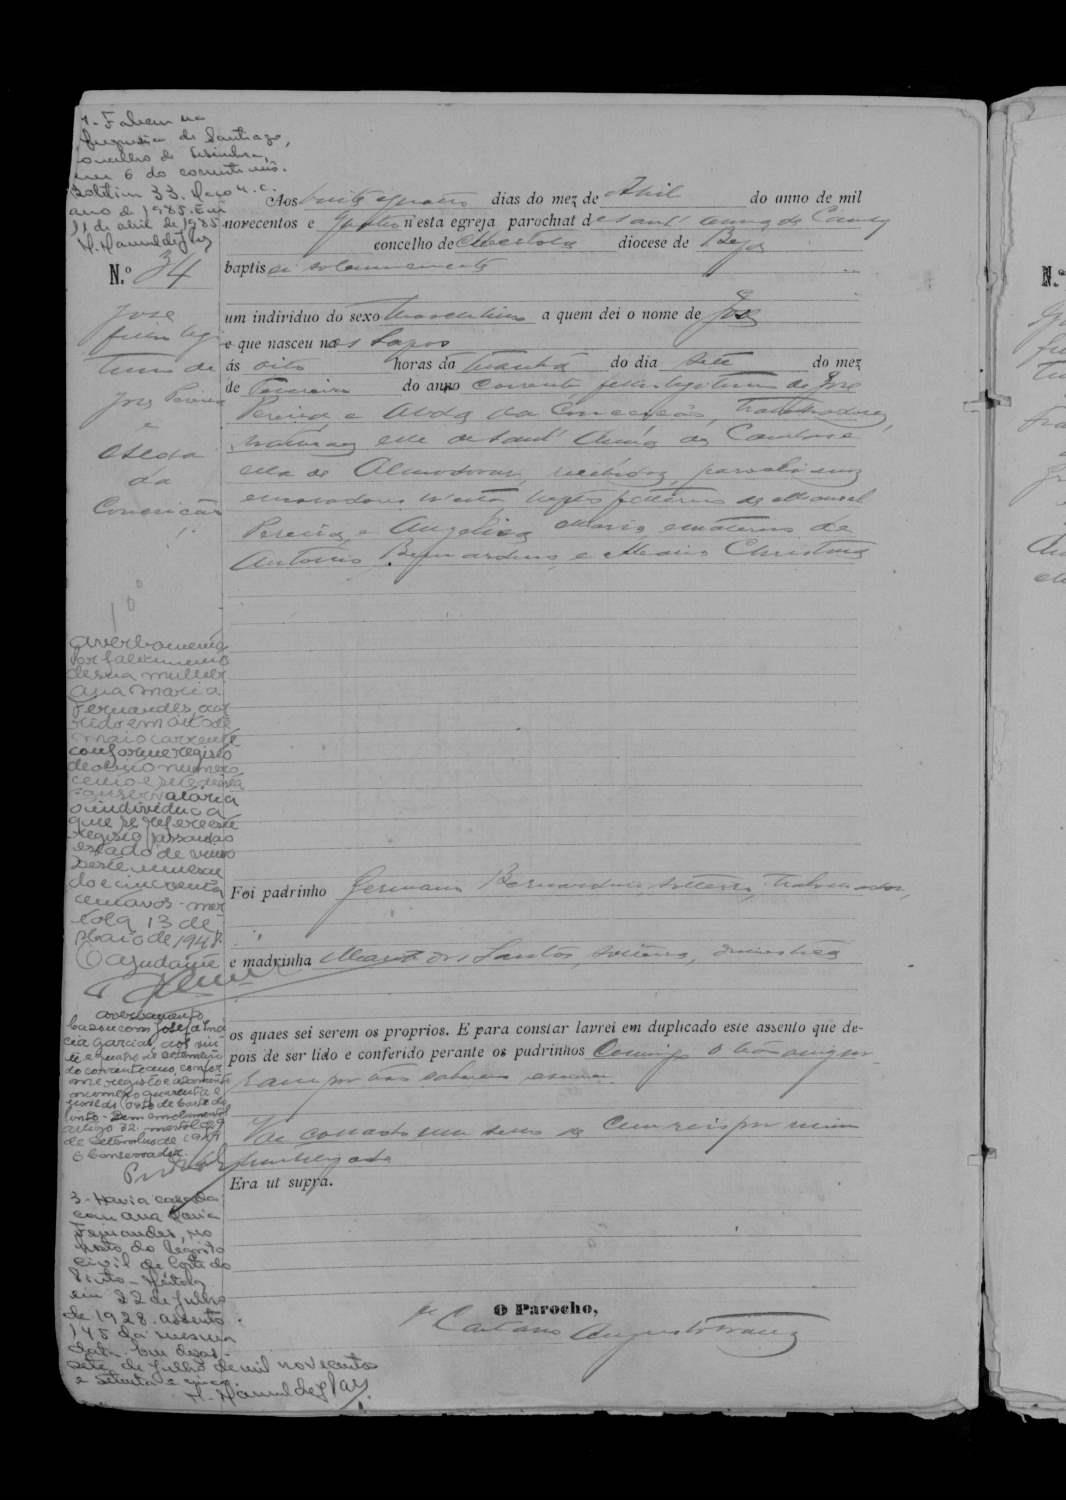 4. Faleceu na
freguesia de Santiago,
concelho de Sesimbra,
em 6 do corrente mês.
Boletim 33. Maço 4. C.
ano de 1985. Em
11 de abril de 1985
Nº 34
José
filho legi
timo de
José Pereira
e
Alda
da
Conceição
Aos vinte e quatro dias do mez de Abril do anno de mil
novecentos e quatro n'esta egreja parochial de Sant' Anna de Cambas
concelho de Mertola diocese de Beja
baptisei solemnemente
um individuo do sexo masculino a quem dei o nome de José
e que nasceu nos
ás oito horas da manhã do dia sete do mez
de Fevereiro do anno corrente, filho legitimo de José
Pereira e Alda da Conceição, trabalhadores,
naturaes elle de Sant' Anna de Cambas e
ella de Almodovar, recebidos, parochianos
e moradores n'esta neto paterno de Manoel
Pereira, e Angelica Maria, e materno de
Antonio Bernardino, e Maria Christina
1º
averbamento
por falecimento
de sua mulher
Ana Maria
Fernandes, ocor
rido em oito de
maio corrente
conforme registo
de obito numero
cento e
conservatoria
o individuo a
que se refere este
registo passou ao
estado de viuvo
Deste um escu
do e cincoenta
centavos - Mer
tola, 13 de
Maio de 1948.
O ajudante
Foi padrinho Germano Bernardino, solteiro, trabalhador,
e madrinha Maria dos Santos, solteira, domestica
os quaes sei serem os proprios. E para constar lavrei em duplicado este assento que de-
pois de ser lido e conferido perante os padrinhos Comigo o não assigna-
ram por não saberem escrever.
Vae collado um sello de Cem reis por mim
inutilizado
Era ut supra.
averbamento
Casou com Josefa Iná
cia Garcia, aos vin
te e quatro de Setembro
do corrente ano, confor
me registo de casamento
numero quarenta e
do Posto de Corte do
Pinto - Sem emolumentos
artigo 32. Mertola 29
de Setembro de 19
O Conservador
3 - Havia casado
com Ana Maria
Fernandes, no
Posto do Registo
Civil de Corte do
Pinto - Mértola
em 22 de Julho
de 1928. assento
145 da mesma
data. Em dezas-
sete de Julho de mil novecentos
e setenta e cinco.
O Parocho,
Caetano Augusto